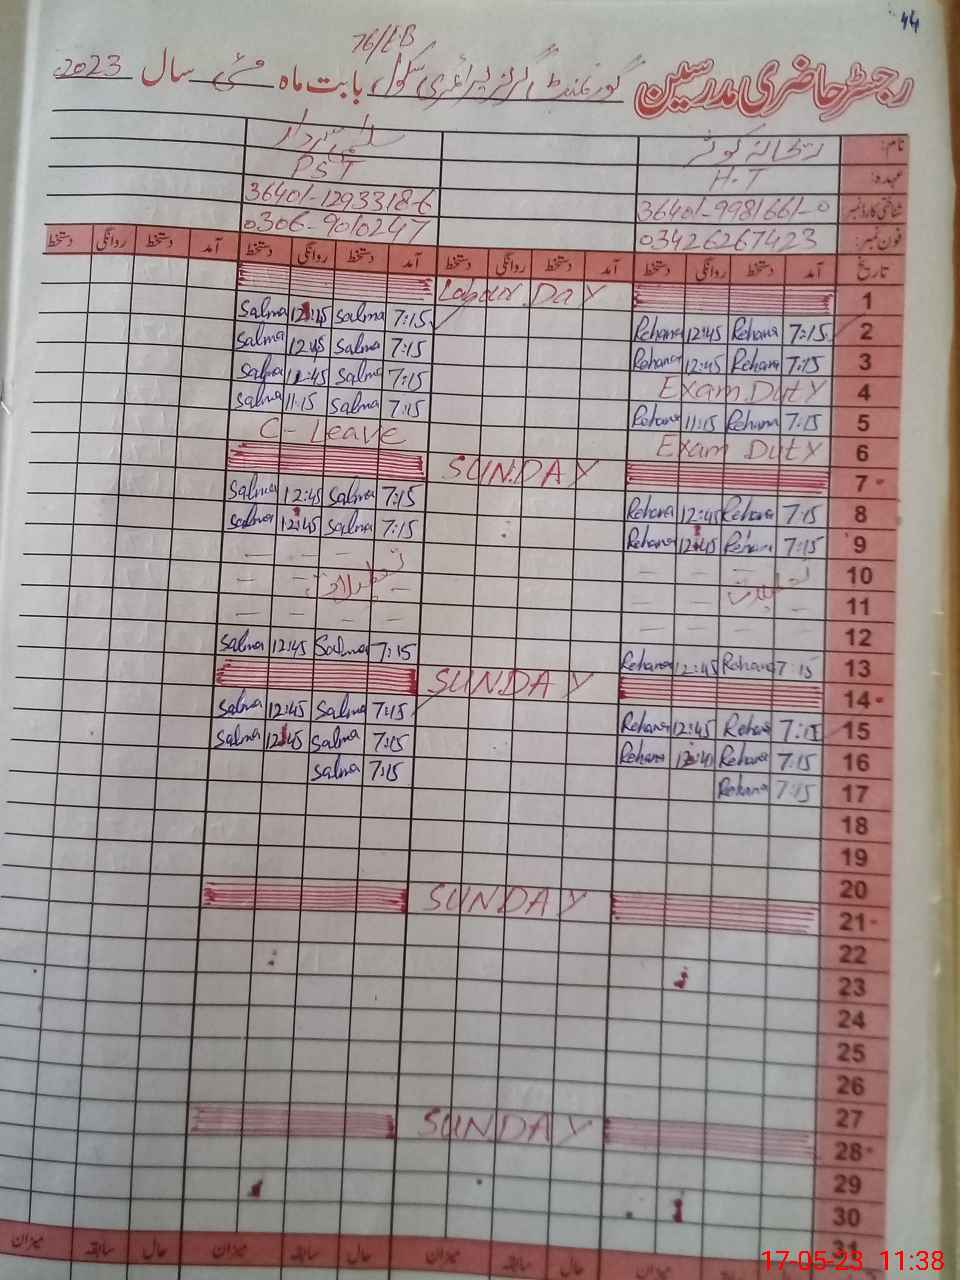 44
76/EB
رجسٹر حاضری مدرسین گورنمنٹ گرلز پرائمری سکول، بابت ماہ مئی سال 2023
نام: ریحانہ کوثر
عہدہ: H.T PST
شناختی کارڈ نمبر 36401-9981661-0 36401-1293318-6
فون نمبر: 03426267423 0306-9010247
تاریخ آمد دستخط روانگی دستخط آمد دستخط روانگی دستخط آمد دستخط روانگی دستخط آمد دستخط روانگی دستخط
Labour Day 1
Salma 12:45 Salma 7:15 Rehana 12:45 Rehana 7:15 2
Salma 12:45 Salma 7:15 Rehana 12:45 Rehana 7:15 3
Salma 12:45 Salma 7:15 Exam Duty 4
Salma 11:15 Salma 7:15 Rehana 11:15 Rehana 7:15 5
C-Leave Exam Duty 6
SUNDAY 7
Salma 12:45 Salma 7:15 Rehana 12:45 Rehana 7:15 8
Salma 12:45 Salma 7:15 Rehana 12:45 Rehana 7:15 9
10
تعطیلات تعطیلات 11
12
Salma 12:45 Salma 7:15 Rehana 12:45 Rehana 7:15 13
SUNDAY 14
Salma 12:45 Salma 7:15 Rehana 12:45 Rehana 7:15 15
Salma 12:45 Salma 7:15 Rehana 12:45 Rehana 7:15 16
Salma 7:15 Rehana 7:15 17
18
19
20
SUNDAY 21
22
23
24
25
26
27
SUNDAY 28
29
30
31
حال سابقہ میزان حال سابقہ میزان حال سابقہ میزان
17-05-23 11:38